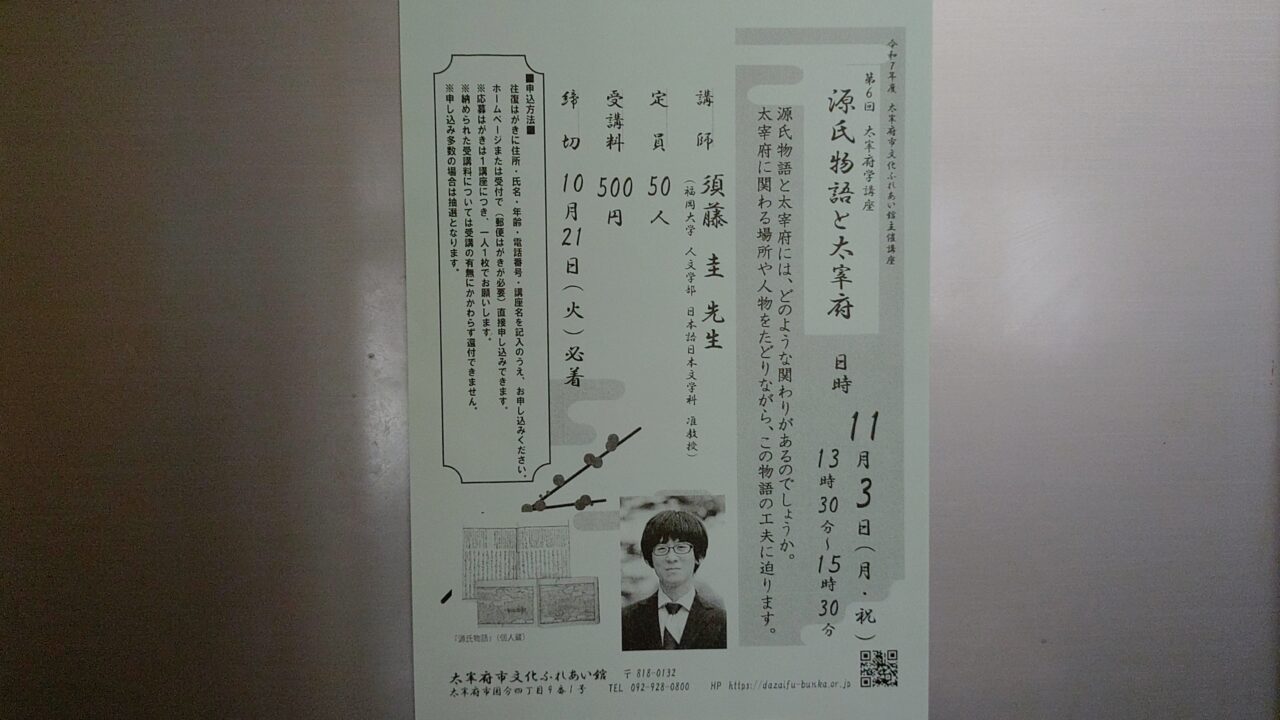 令和7年度 太宰府市文化ふれあい館主催講座
第6回 大宰府学講座
源氏物語と太宰府
日時 11月3日(月・祝)
13時30分~15時30分
源氏物語と太宰府には、どのような関わりがあるのでしょうか。
太宰府に関わる場所や人物をたどりながら、この物語の工夫に迫ります。
講師 須藤 圭 先生
(福岡大学 人文学部 日本語日本文学科 准教授)
定員 50人
受講料 500円
締切 10月21日(火)必着
■申込方法■
往復はがきに住所・氏名・年齢・電話番号・講座名を記入のうえ、お申し込みください。
ホームページまたは受付で(郵便はがきが必要)直接申し込みできます。
※応募はがきは1講座につき、一人1枚でお願いします。
※納められた受講料については受講の有無にかかわらず還付できません。
※申し込み多数の場合は抽選となります。
『源氏物語』(個人蔵)
太宰府市文化ふれあい館 〒818-0132
太宰府市国分四丁目9番1号 TEL 092-928-0800 HP https://dazaifu-bunka.or.jp